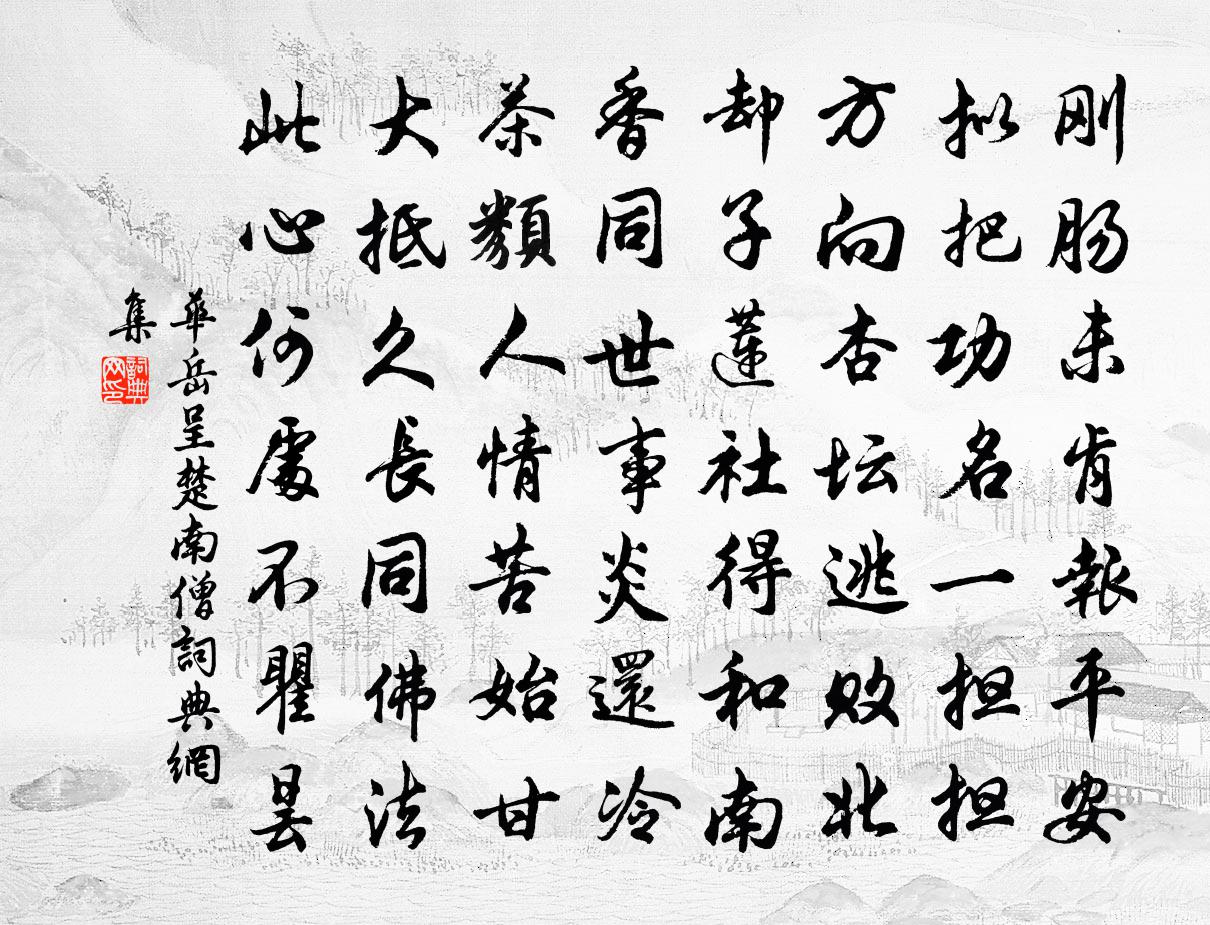 刚肠未肯報平安
拟把功名一担担
方向杏坛逃败北
却于蓮社得和南
香同世事炎還冷
茶類人情苦始甘
大抵久長同佛法
此心何處不瞿昙
華岳呈楚南僧詞典網
集
詞典
网印